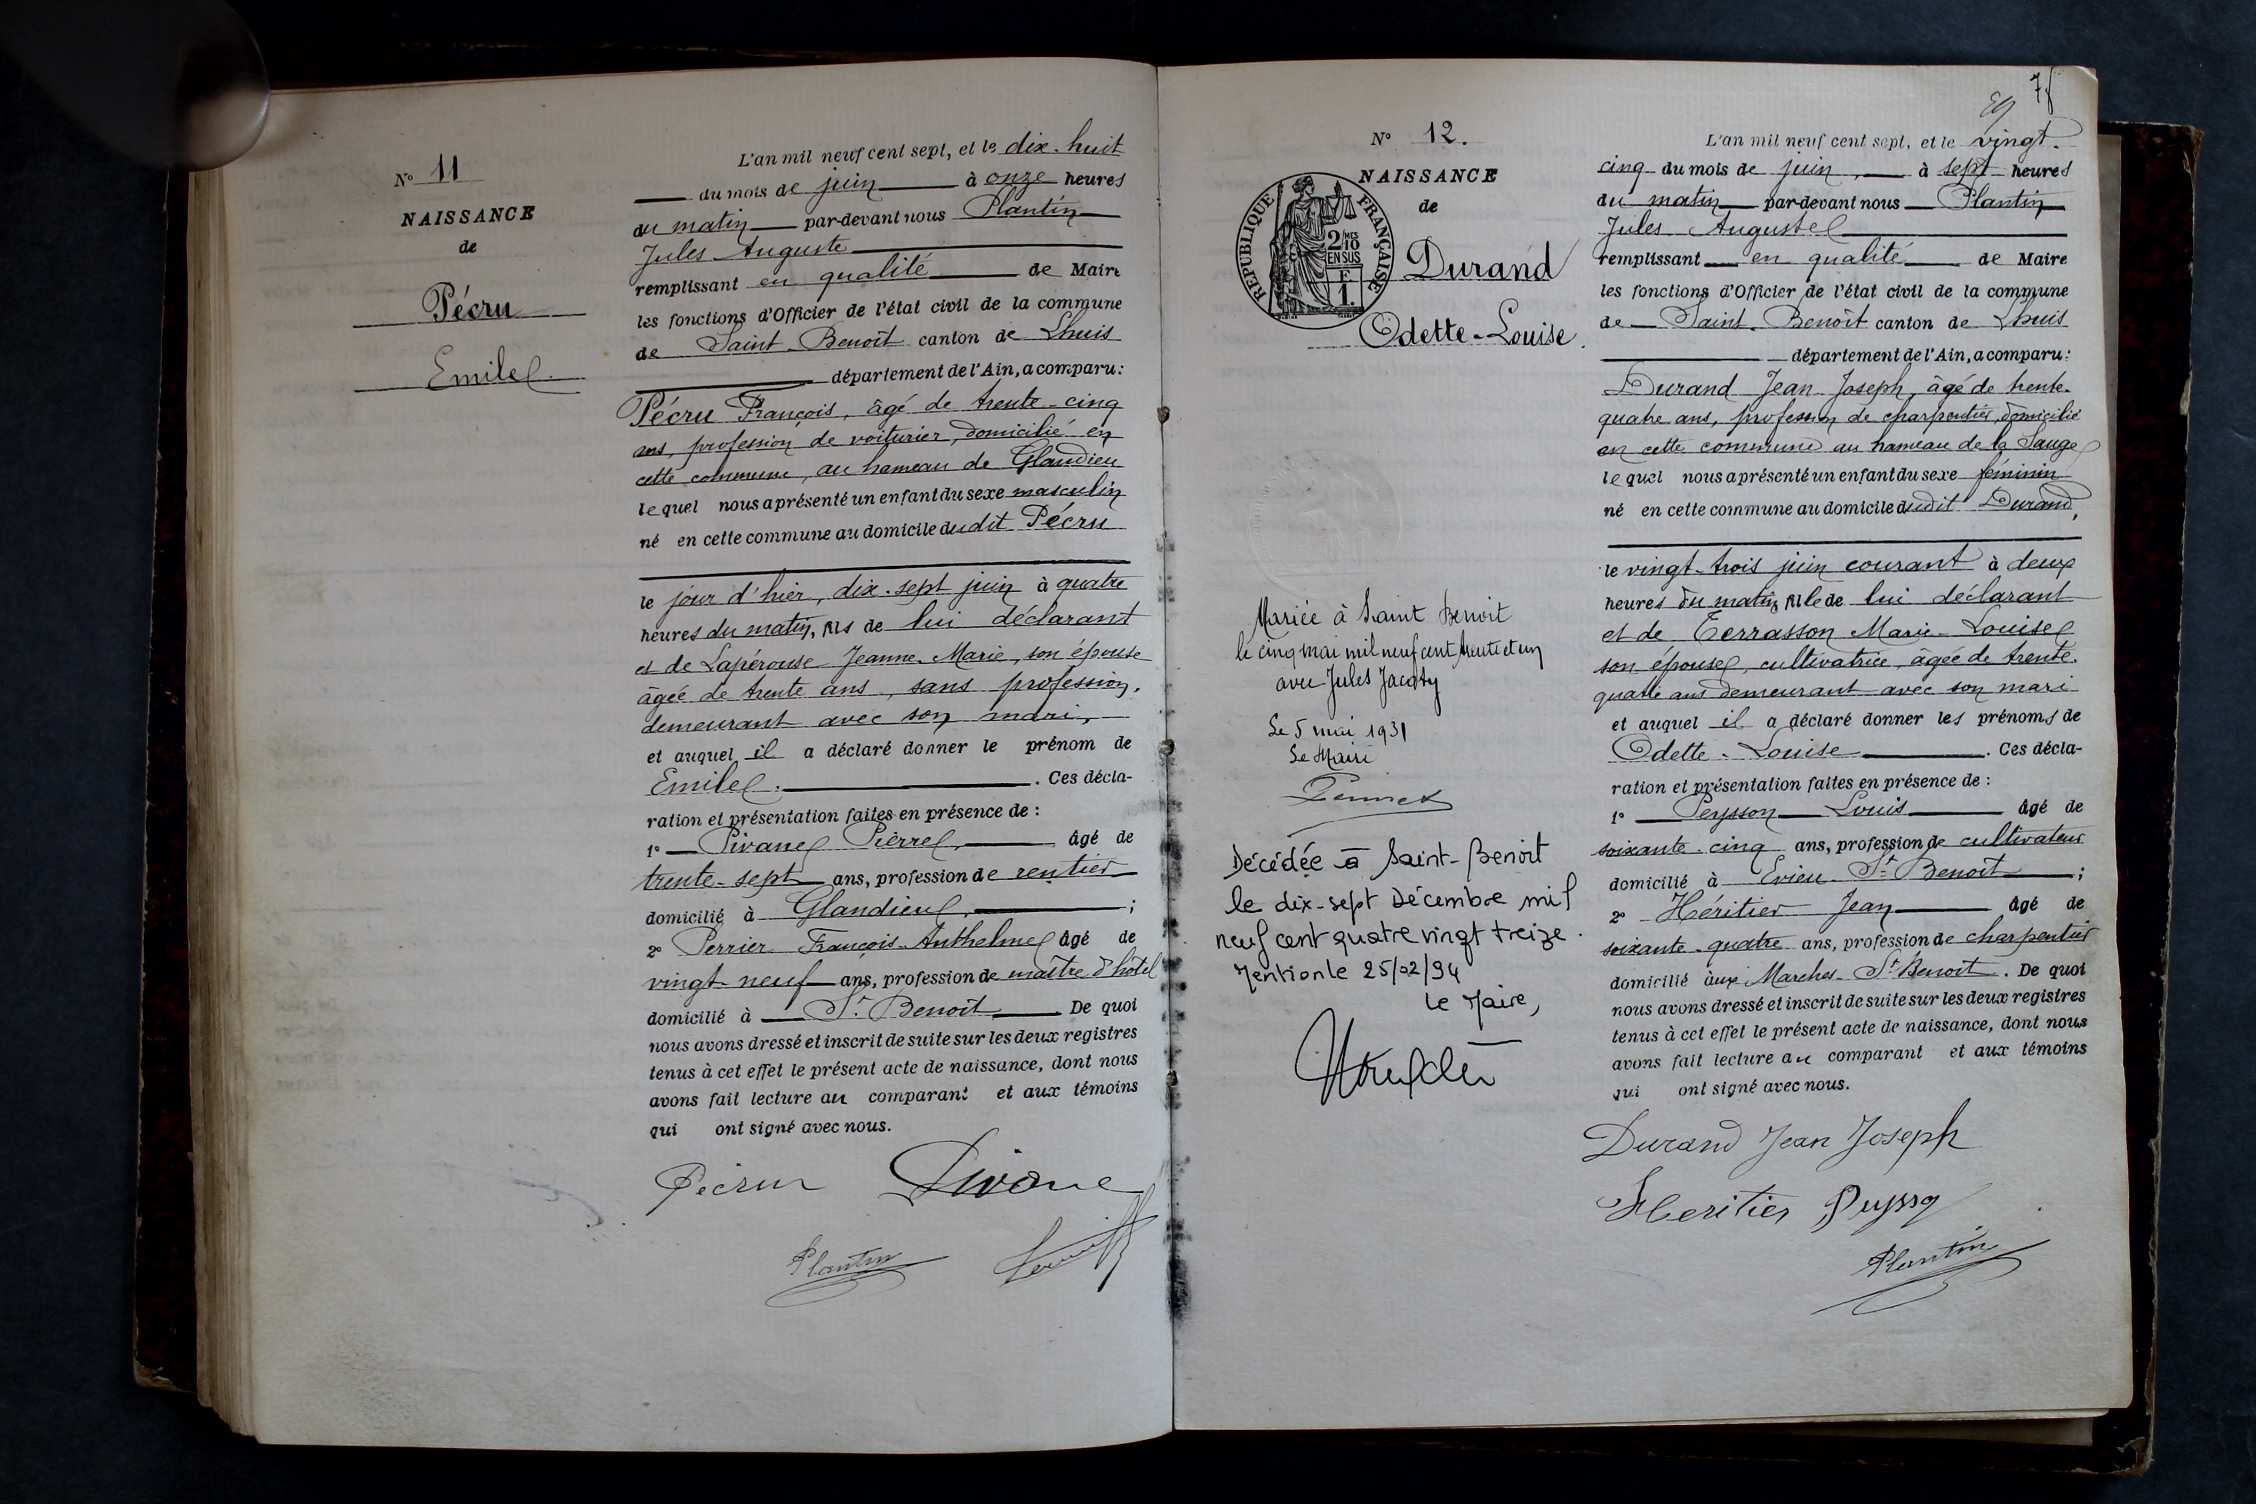 N° 11
NAISSANCE
de
Pécru
Emile
L'an mil neuf cent sept, et le dix-huit
du mois de juin à onze heures
du matin par-devant nous Plantin
Jules Auguste
remplissant en qualité de Maire
les fonctions d'Officier de l'état civil de la commune
de Saint-Benoît canton de Lhuis
département de l'Ain, a comparu:
Pécru François, âgé de trente-cinq
ans, profession de voiturier, domicilié en
cette commune, au hameau de Glandieu
lequel nous a présenté un enfant du sexe masculin
né en cette commune au domicile dudit Pécru
le jour d'hier, dix-sept juin à quatre
heures du matin, fils de lui déclarant
et de Lapérouse Jeanne-Marie, son épouse
âgée de trente ans, sans profession,
demeurant avec son mari,
et auquel il a déclaré donner le prénom de
Emile. Ces décla-
ration et présentation faites en présence de :
1° Pivane Pierre, âgé de
trente-sept ans, profession de rentier
domicilié à Glandieu, ;
2° Perrier François-Anthelme âgé de
vingt-neuf ans, profession de maître d'hôtel
domicilié à St Benoît De quoi
nous avons dressé et inscrit de suite sur les deux registres
tenus à cet effet le présent acte de naissance, dont nous
avons fait lecture au comparant et aux témoins
qui ont signé avec nous.
Pécru Pivane
Plantin
78
N° 12.
NAISSANCE
de
RÉPUBLIQUE FRANÇAISE
2/10 MES
EN SUS
F
1.
Durand
Odette-Louise.
Mariée à Saint Benoit
le cinq mai mil neuf cent trente et un
avec Jules Jacoty
Le 5 mai 1931
Le Maire
Décédée à Saint-Benoît
le dix-sept Décembre mil
neuf cent quatre vingt treize.
Mention le 25/02/94
Le Maire,
L'an mil neuf cent sept, et le vingt-
cinq du mois de juin, à sept heures
du matin par-devant nous Plantin
Jules Auguste
remplissant en qualité de Maire
les fonctions d'Officier de l'état civil de la commune
de Saint-Benoît canton de Lhuis
département de l'Ain, a comparu:
Durand Jean Joseph, âgé de trente-
quatre ans, profession de charpentier, domicilié
en cette commune au hameau de la Sauge
lequel nous a présenté un enfant du sexe féminin
né en cette commune au domicile dudit Durand,
le vingt-trois juin courant à deux
heures du matin, fille de lui déclarant
et de Terrasson Marie-Louise
son épouse, cultivatrice, âgée de trente-
quatre ans demeurant avec son mari
et auquel il a déclaré donner les prénoms de
Odette-Louise. Ces décla-
ration et présentation faites en présence de :
1° Peysson Louis âgé de
soixante-cinq ans, profession de cultivateur
domicilié à Evieu St Benoît ;
2° Héritier Jean âgé de
soixante-quatre ans, profession de charpentier
domicilié aux Marches St Benoît. De quoi
nous avons dressé et inscrit de suite sur les deux registres
tenus à cet effet le présent acte de naissance, dont nous
avons fait lecture au comparant et aux témoins
qui ont signé avec nous.
Durand Jean Joseph
Heritier
Plantin